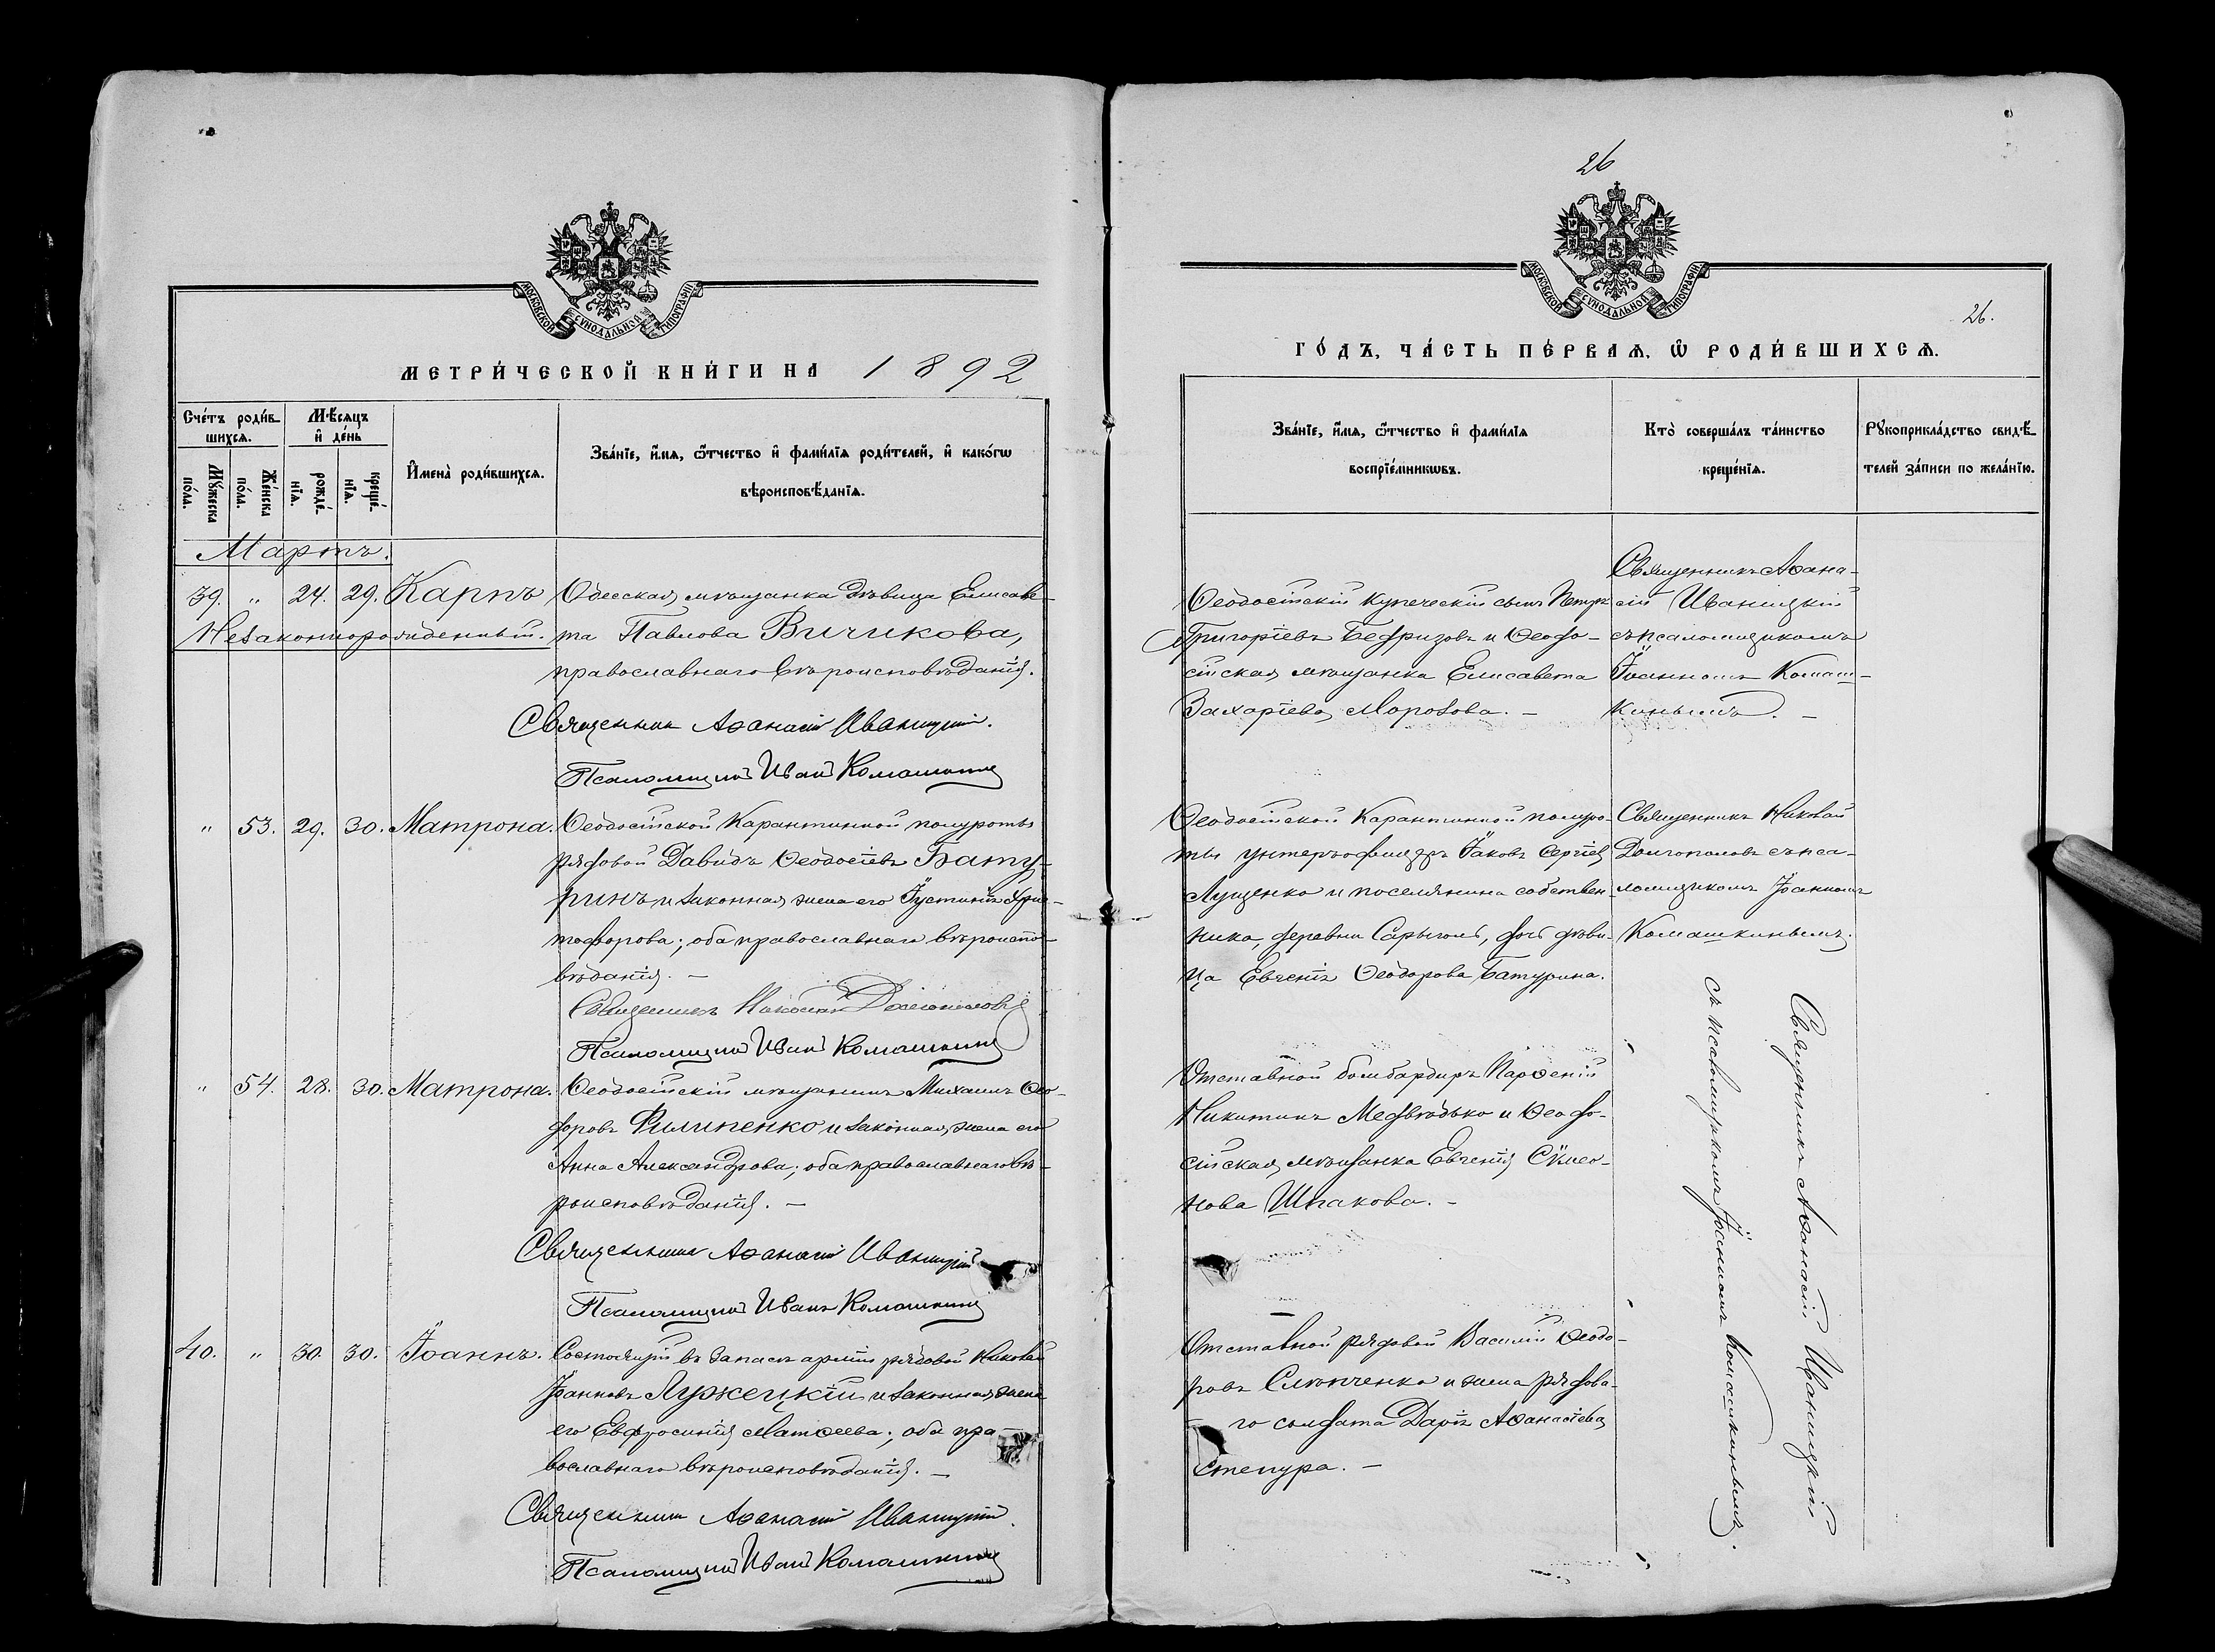 26
МОСКОВСКОЙ СѴНОДАЛЬНОЙ ТИПОГРАФІИ
МОСКОВСКОЙ СѴНОДАЛЬНОЙ ТИПОГРАФІИ
26.
МЕТРИ́ЧЕСКОЙ КНИ́ГИ НА 1892
ГО́ДЪ, ЧА́СТЬ ПЕ́РВАѦ, Ѿ РОДИ́ВШИХСѦ.
Сче́тъ роди́в-
шихсѧ.
Мꙋ́жеска
по́ла.
Же́нска
по́ла.
Мѣ́сяцъ
и҆ де́нь
рожде́-
нїѧ.
креще́-
нїѧ.
И҆мена̀ роди́вшихсѧ.
Зва́нїе, и҆́мѧ, ѻ҆́тчество и҆ фами́лїѧ роди́телей, и҆ како́гѡ
вѣроисповѣ́данїѧ.
Зва́нїе, и҆́мѧ, ѻ҆́тчество и҆ фами́лїѧ
воспрїе́мникѡвъ.
Кто̀ соверша́лъ та́инство
креще́нїѧ.
Рꙋкоприкла́дство свидѣ́-
телей за́писи по жела́нїю.
Мартъ.
39. " 24. 29. Карпъ
Незаконнорожденный.
Одесская мѣщанка дѣвица Елисаве-
та Павлова Вичикова,
православнаго вѣроисповѣданія.
Священник Аѳанасій Иваницкій.
Псаломщикъ Иванъ Комашкинъ
Ѳеодосійскій купеческій сынъ Петръ
Григоріевъ Бефризовъ и Ѳеодо-
сійская мѣщанка Елисавета
Захаріева Морозова. –
Священникъ Аѳана-
сій Иваницкій
съ псаломщикомъ
Іоанномъ Комаш-
кинымъ. –
" 53. 29. 30. Матрона.
Ѳеодосійской Карантинной полуроты
рядовой Давидъ Ѳеодосіевъ Бату-
ринъ и законная жена его Іустинія Хрис-
тофорова; оба православнаго вѣроиспо-
вѣданія. –
Священникъ Николай Долгополовъ
Псаломщикъ Иванъ Комашкинъ
Ѳеодосійской Карантинной полуро-
ты унтеръ-офицеръ Іаковъ Сергіев
Лущенко и поселянина собствен-
ника, деревни Сарыголь, дочь дѣви-
ца Евгенія Ѳеодорова Батурина.
Священникъ Николай
Долгополовъ съ пса-
ломщикомъ Іоанномъ
Комашкинымъ.
" 54. 28. 30. Матрона.
Ѳеодосійскій мѣщанинъ Михаилъ Ѳео-
доровъ Филипенко и законная жена его
Анна Александрова; оба православнаго вѣ-
роисповѣданія. –
Священник Аѳанасій Иваницкій
Псаломщикъ Иванъ Комашкинъ
Отставной бомбардиръ Парѳеній
Никитинъ Медвѣдько и Ѳеодо-
сійская мѣщанка Евгенія Сѵмео-
нова Шпакова. –
Священникъ Аѳанасій Иваницкій
съ псаломщикомъ Іоанномъ Комашкинымъ.
40. " 30. 30. Іоаннъ.
Состоящій въ запасѣ арміи рядовой Николай
Іоанновъ Лужецкій и законная жена
его Евфросинія Матѳеева; оба пра-
вославнаго вѣроисповѣданія. –
Священник Аѳанасій Иваницкій.
Псаломщикъ Иванъ Комашкинъ
Отставной рядовой Василій Ѳеодо-
ровъ Слѣпченко и жена рядова-
го солдата Дарія Аѳанасіева
Степура. –